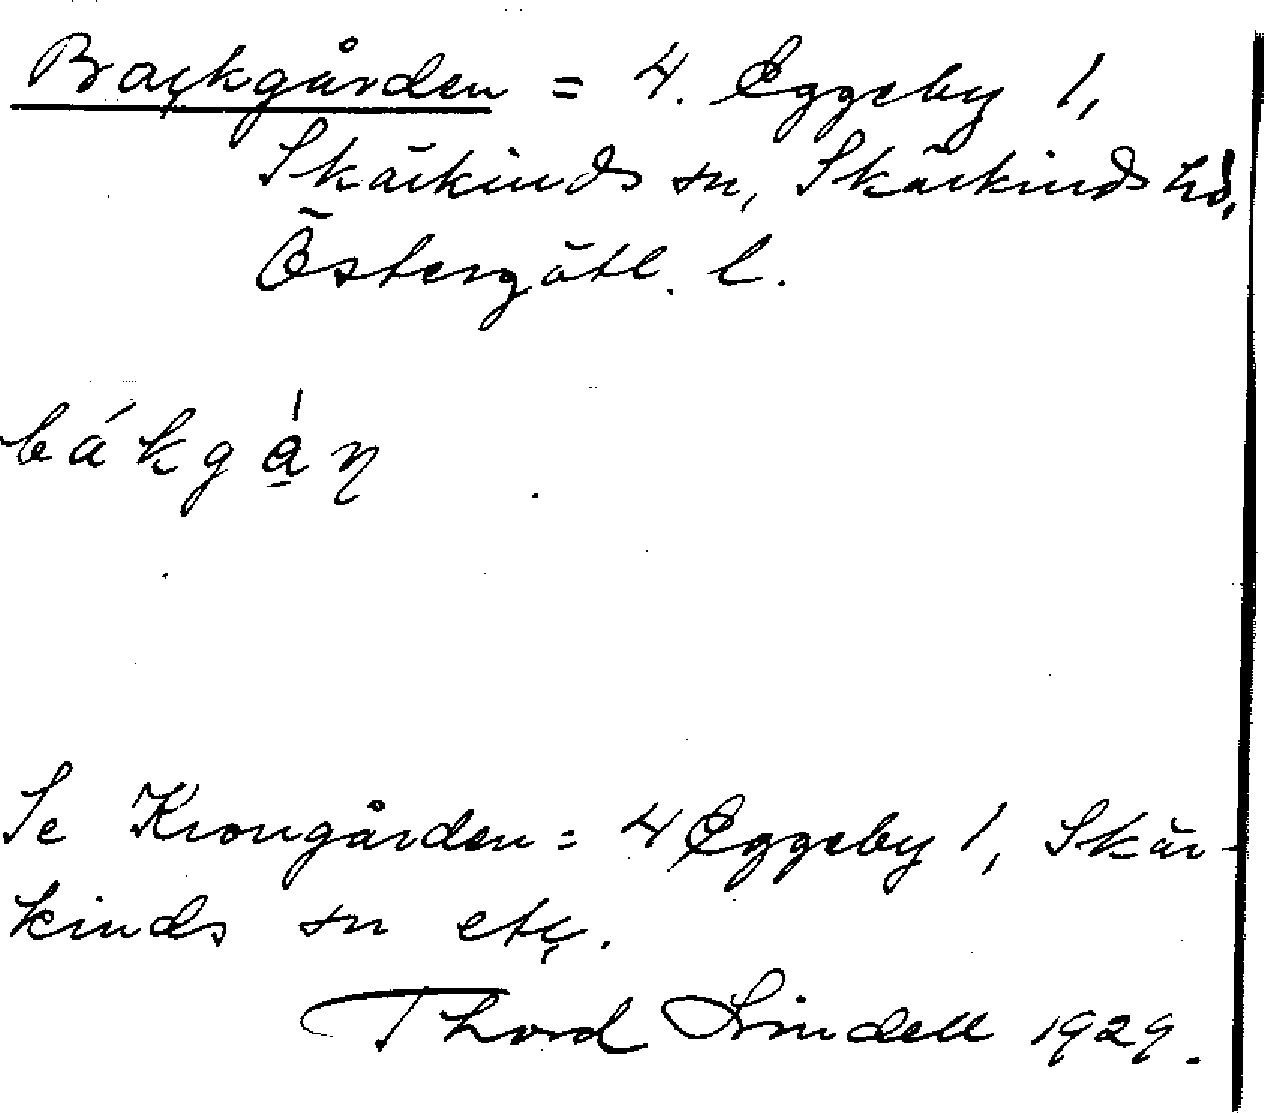 Backgården = 4. Eggeby 1,
Skärkinds sn, Skärkinds hd,
Östergötl. l.
bákgá̱n
Se Krongården = 4 Eggeby 1, Skär-
kinds sn etc.
Thord Lindell 1929.